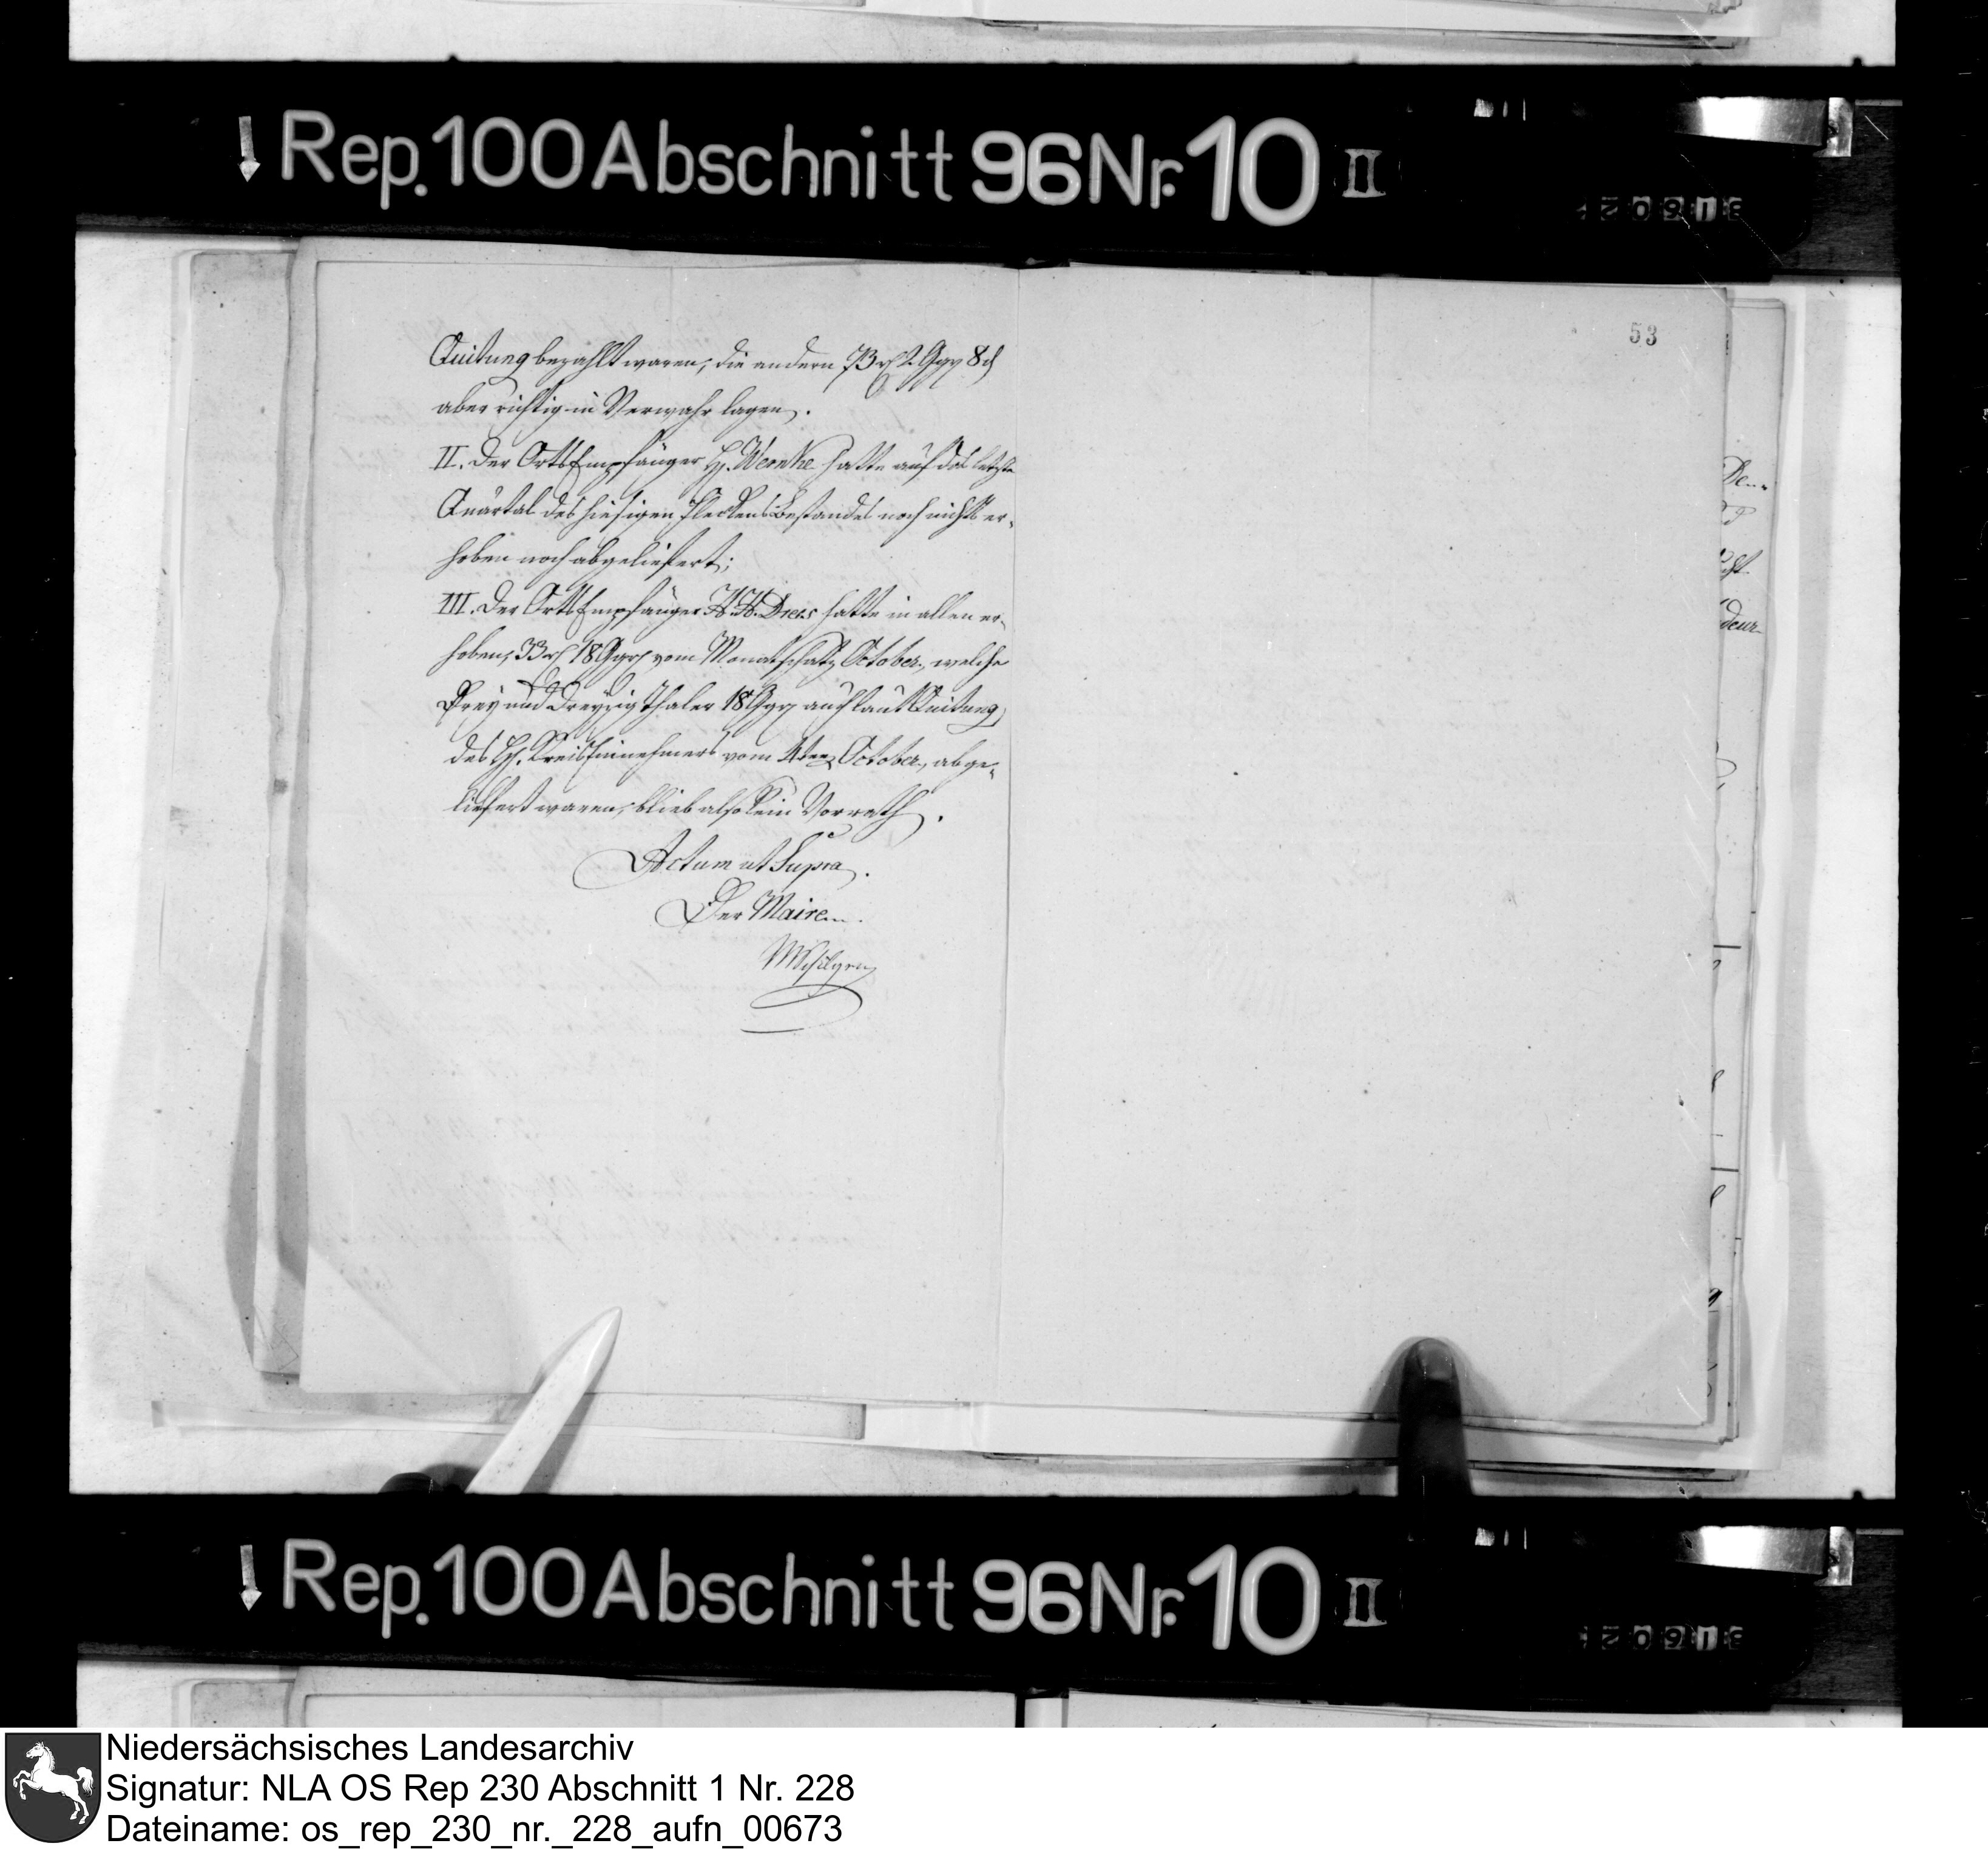 Rep. 100 Abschnitt 96 Nr. 10 II
53
Quitung bezahlt waren, die andern 73 rl 2 Ggr 8 d
aber richtig in Verwahr lagen.
II. Der Orts Empfänger H. Wernke hatte auf das letzte
Quartal des hiesigen Fleckens Bestandes noch nichts er-
hoben noch abgeliefert;
III. Der Orts Empfänger Dress hatte in allen er-
hoben, 33 rl 18 Ggr vom Monatschatz October, welche
Drey und Dreyzig Thaler 18 Ggr auch laut Quitung
des H. Kreis Einnehmers vom 4ten October, abge-
liefert waren, blieb also kein Vorrath.
Actum ut Supra.
Der Maire
Rep. 100 Abschnitt 96 Nr. 10 II
Niedersächsisches Landesarchiv
Signatur: NLA OS Rep 230 Abschnitt 1 Nr. 228
Dateiname: os_rep_230_nr._228_aufn_00673